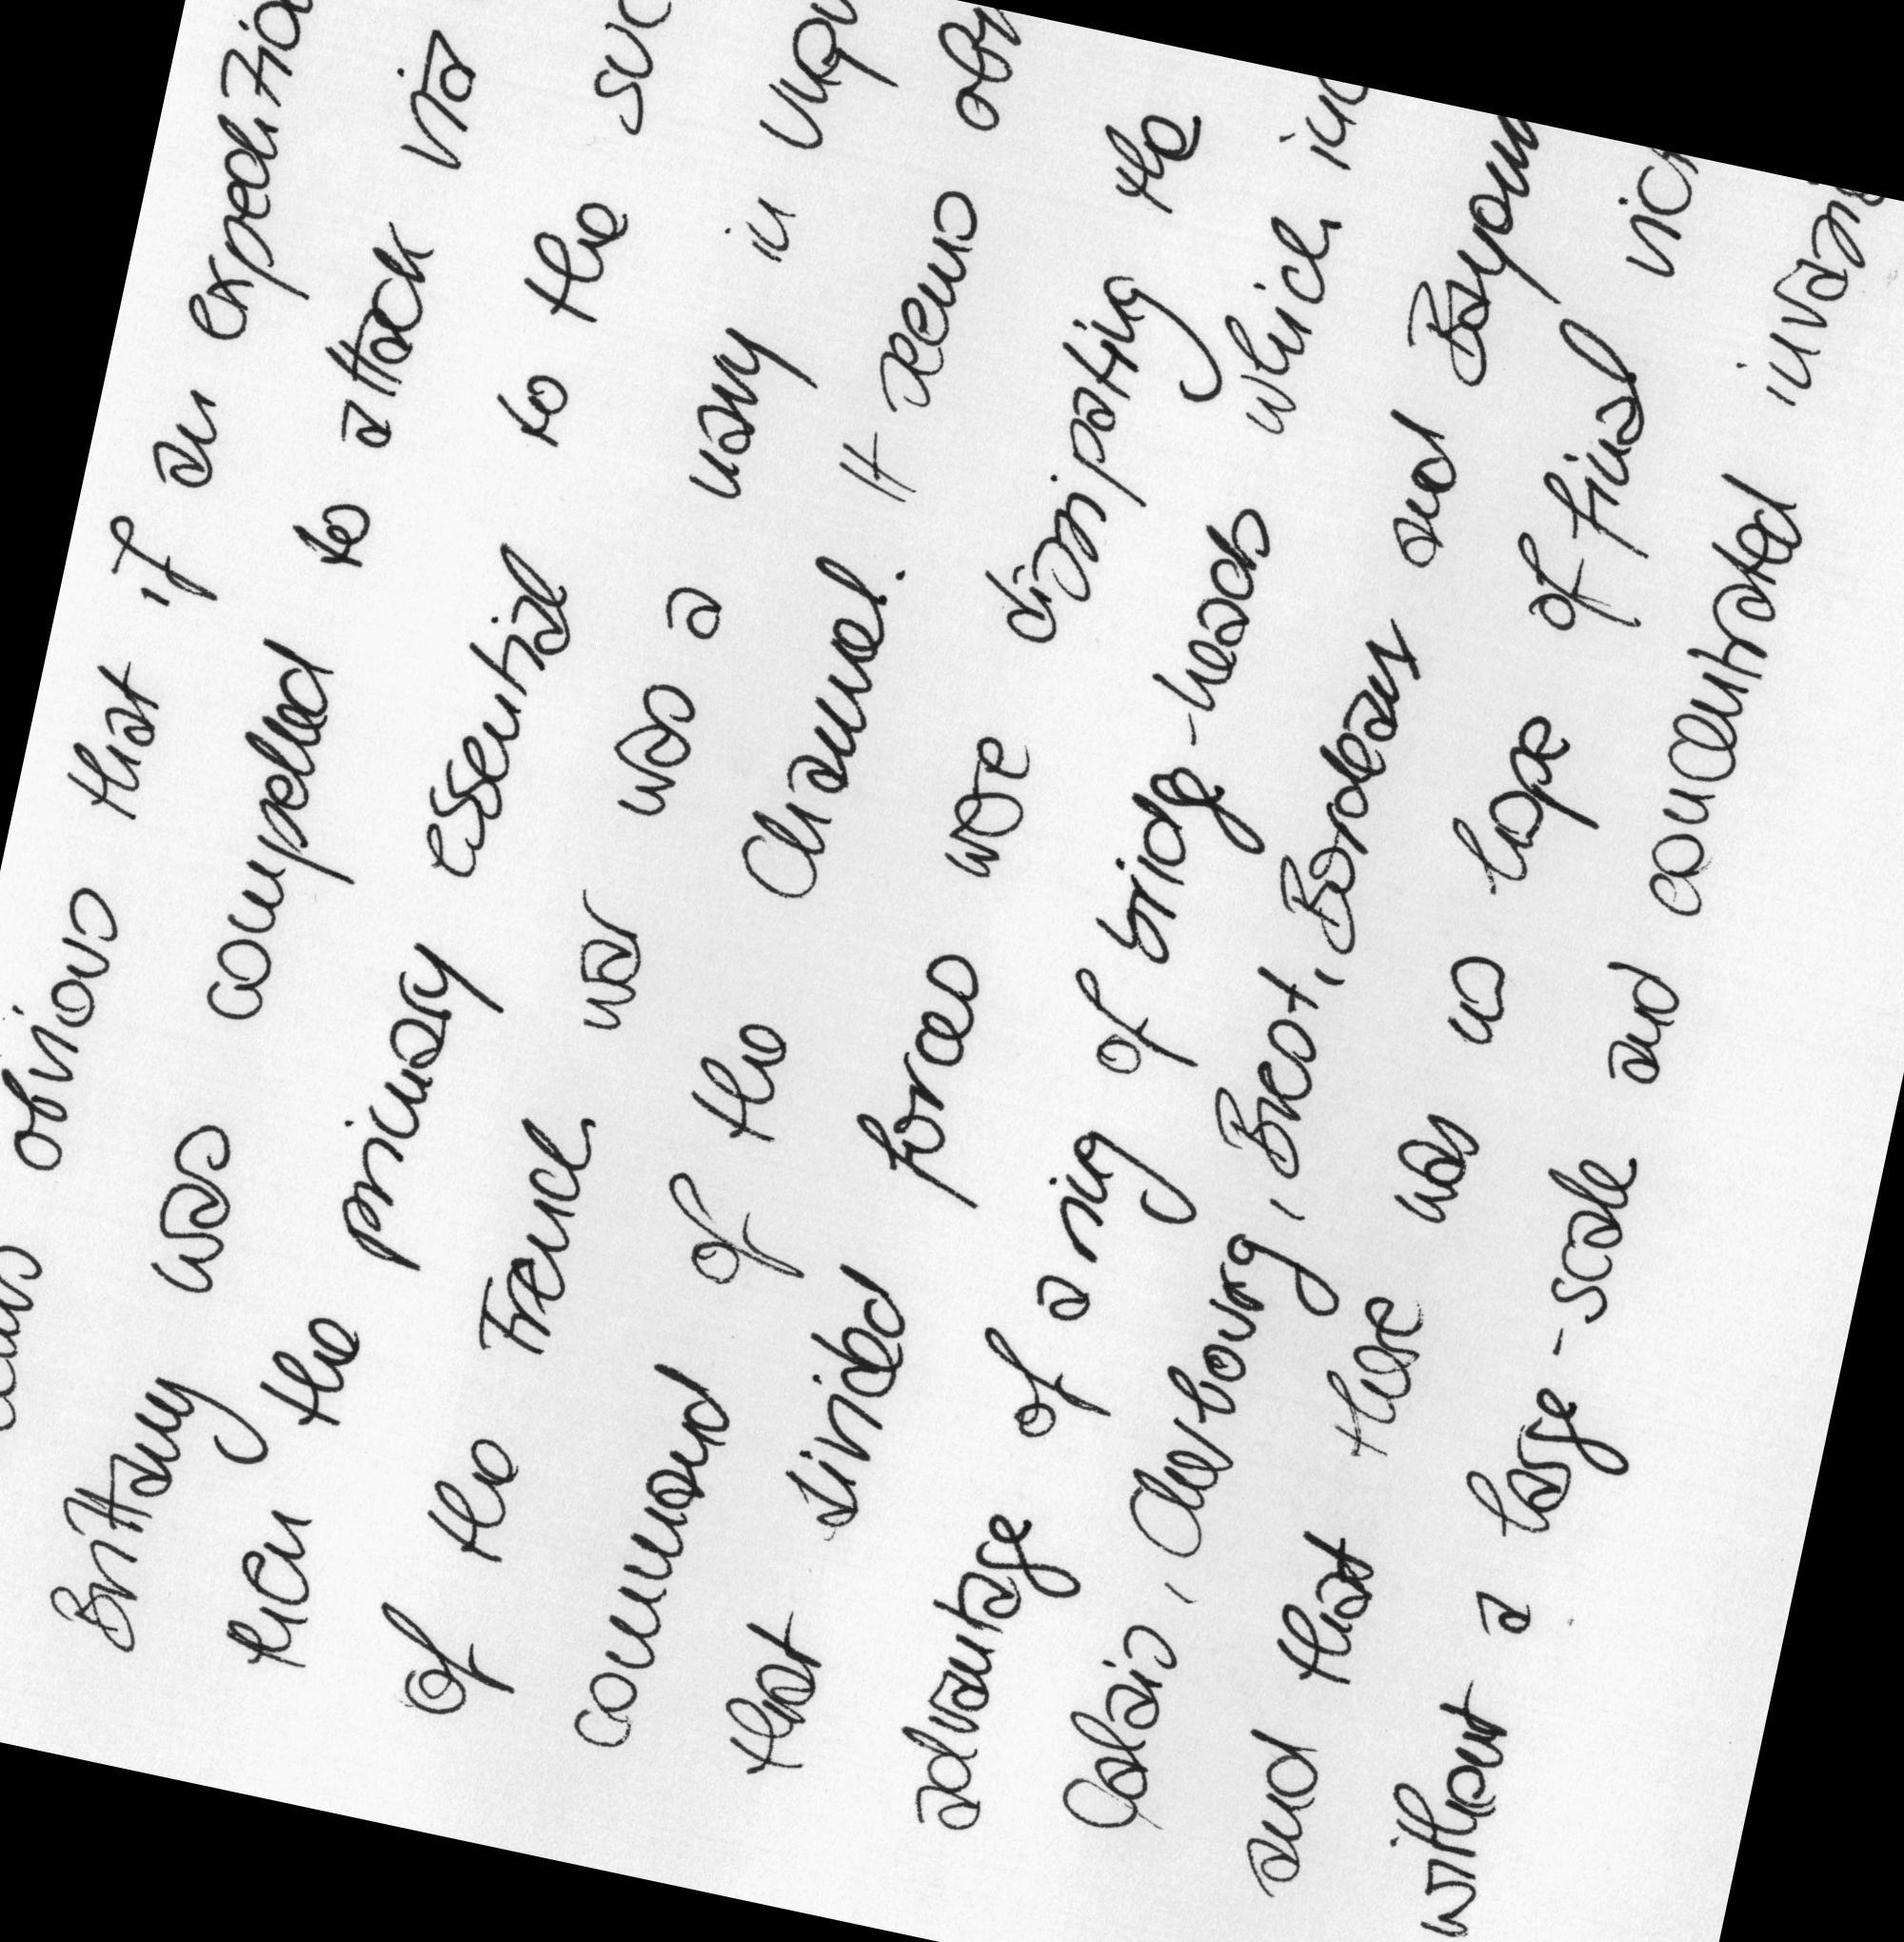 obvious that if an
Brittany was compelled to attack via
then the primary essential to the
of the French war was a navy in
command of the Channel. It seems
that divided forces were dissipating the
advantage of a ring of bridge-heads which
Calais, Cherbourg, Brest, Bordeaux and
and that there was no hope of final
without a large-scale and concentrated